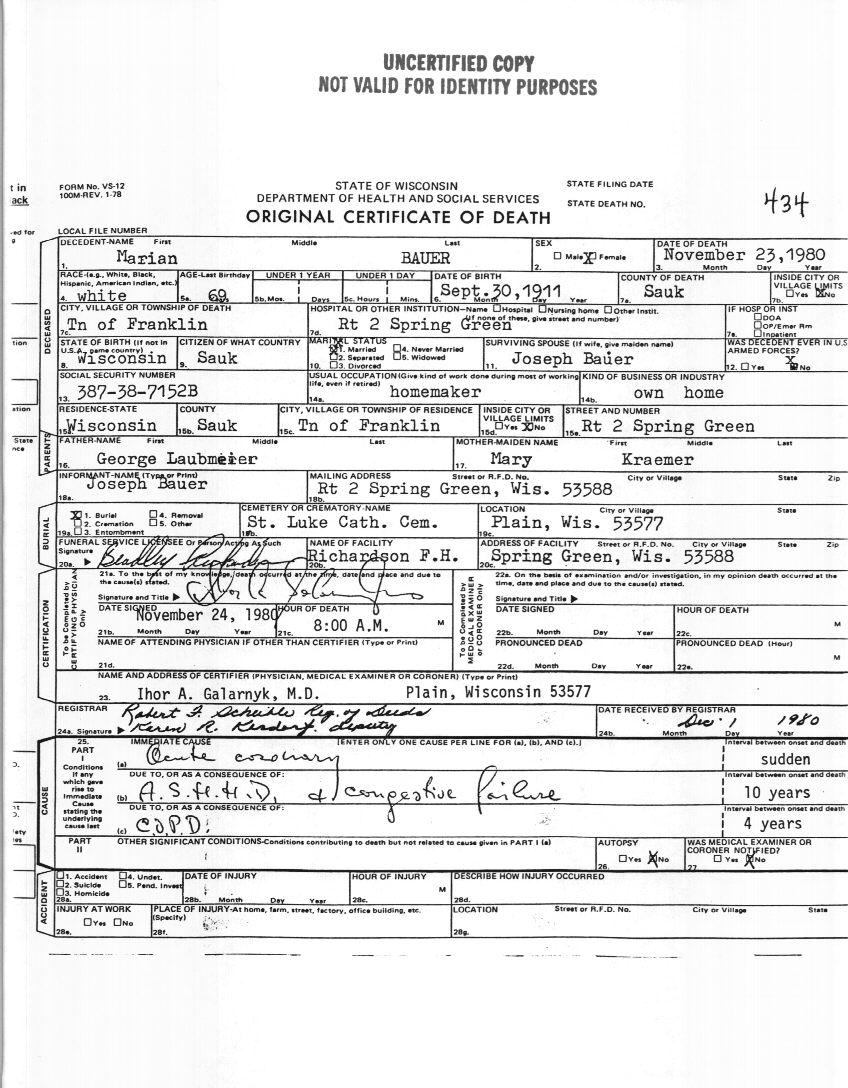 UNCERTIFIED COPY
NOT VALID FOR IDENTITY PURPOSES
t in
ack
FORM No. VS-12
100M-REV. 1-78
STATE OF WISCONSIN
DEPARTMENT OF HEALTH AND SOCIAL SERVICES
ORIGINAL CERTIFICATE OF DEATH
STATE FILING DATE
STATE DEATH NO.
434
LOCAL FILE NUMBER
DECEDENT-NAME First Middle Last SEX DATE OF DEATH
Marian BAUER 2. Male X Female November 23,1980
1. 3. Month Day Year
RACE-(e.g., White, Black, Hispanic, American Indian, etc.) AGE-Last Birthday UNDER 1 YEAR UNDER 1 DAY DATE OF BIRTH COUNTY OF DEATH INSIDE CITY OR VILLAGE LIMITS
4. white 5a. 69 5b. Mos. Days 5c. Hours Mins. 6. Sept.30,1911 Month Day Year 7a. Sauk 7b. Yes X No
CITY, VILLAGE OR TOWNSHIP OF DEATH HOSPITAL OR OTHER INSTITUTION-Name Hospital Nursing home Other Instit. IF HOSP OR INST
(If none of these, give street and number) DOA
7c. Tn of Franklin 7d. Rt 2 Spring Green 7e. OP/Emer Rm Inpatient
STATE OF BIRTH (If not in U.S.A., name country) CITIZEN OF WHAT COUNTRY MARITAL STATUS SURVIVING SPOUSE (If wife, give maiden name) WAS DECEDENT EVER IN U.S ARMED FORCES?
8. Wisconsin 9. Sauk 10. X 1. Married 2. Separated 3. Divorced 4. Never Married 5. Widowed 11. Joseph Bauer 12. Yes X No
SOCIAL SECURITY NUMBER USUAL OCCUPATION (Give kind of work done during most of working life, even if retired) KIND OF BUSINESS OR INDUSTRY
13. 387-38-7152B 14a. homemaker 14b. own home
RESIDENCE-STATE COUNTY CITY, VILLAGE OR TOWNSHIP OF RESIDENCE INSIDE CITY OR VILLAGE LIMITS STREET AND NUMBER
15a. Wisconsin 15b. Sauk 15c. Tn of Franklin 15d. Yes X No 15e. Rt 2 Spring Green
FATHER-NAME First Middle Last MOTHER-MAIDEN NAME First Middle Last
16. George Laubmeier 17. Mary Kraemer
INFORMANT-NAME (Type or Print) MAILING ADDRESS Street or R.F.D. No. City or Village State Zip
18a. Joseph Bauer 18b. Rt 2 Spring Green, Wis. 53588
X 1. Burial 4. Removal CEMETERY OR CREMATORY-NAME LOCATION City or Village State
2. Cremation 5. Other St. Luke Cath. Cem. Plain, Wis. 53577
19a. 3. Entombment 19b. 19c.
FUNERAL SERVICE LICENSEE Or Person Acting As Such NAME OF FACILITY ADDRESS OF FACILITY Street or R.F.D. No. City or Village State Zip
Signature Bradley Richardson Richardson F.H. Spring Green, Wis. 53588
20a. 20b. 20c.
21a. To the best of my knowledge, death occurred at the time, date and place and due to the cause(s) stated.
Signature and Title
22a. On the basis of examination and/or investigation, in my opinion death occurred at the time, date and place and due to the cause(s) stated.
Signature and Title
DATE SIGNED November 24, 1980 HOUR OF DEATH DATE SIGNED HOUR OF DEATH
21b. Month Day Year 21c. 8:00 A.M. M 22b. Month Day Year 22c. M
NAME OF ATTENDING PHYSICIAN IF OTHER THAN CERTIFIER (Type or Print) PRONOUNCED DEAD PRONOUNCED DEAD (Hour)
21d. 22d. Month Day Year 22e. M
NAME AND ADDRESS OF CERTIFIER (PHYSICIAN, MEDICAL EXAMINER OR CORONER) (Type or Print)
23. Ihor A. Galarnyk, M.D. Plain, Wisconsin 53577
REGISTRAR Robert F. Scheible Reg. of Deeds DATE RECEIVED BY REGISTRAR
24a. Signature Karen R. deputy 24b. Dec 1 1980 Month Day Year
25. IMMEDIATE CAUSE [ENTER ONLY ONE CAUSE PER LINE FOR (a), (b), AND (c).] Interval between onset and death
PART I (a) Acute coronary sudden
Conditions if any which gave rise to Immediate Cause stating the underlying cause last
DUE TO, OR AS A CONSEQUENCE OF: Interval between onset and death
(b) A.S.H.D. congestive failure 10 years
DUE TO, OR AS A CONSEQUENCE OF: Interval between onset and death
(c) C.O.P.D. 4 years
PART II OTHER SIGNIFICANT CONDITIONS-Conditions contributing to death but not related to cause given in PART I (a) AUTOPSY WAS MEDICAL EXAMINER OR CORONER NOTIFIED?
26. Yes X No 27. Yes X No
1. Accident 4. Undet. DATE OF INJURY HOUR OF INJURY DESCRIBE HOW INJURY OCCURRED
2. Suicide 5. Pend. Invest
3. Homicide
28a. 28b. Month Day Year 28c. M 28d.
INJURY AT WORK PLACE OF INJURY-At home, farm, street, factory, office building, etc. (Specify) LOCATION Street or R.F.D. No. City or Village State
28e. Yes No 28f. 28g.
DECEASED
PARENTS
BURIAL
CERTIFICATION
To be Completed by CERTIFYING PHYSICIAN Only
To be Completed by MEDICAL EXAMINER or CORONER Only
CAUSE
ACCIDENT